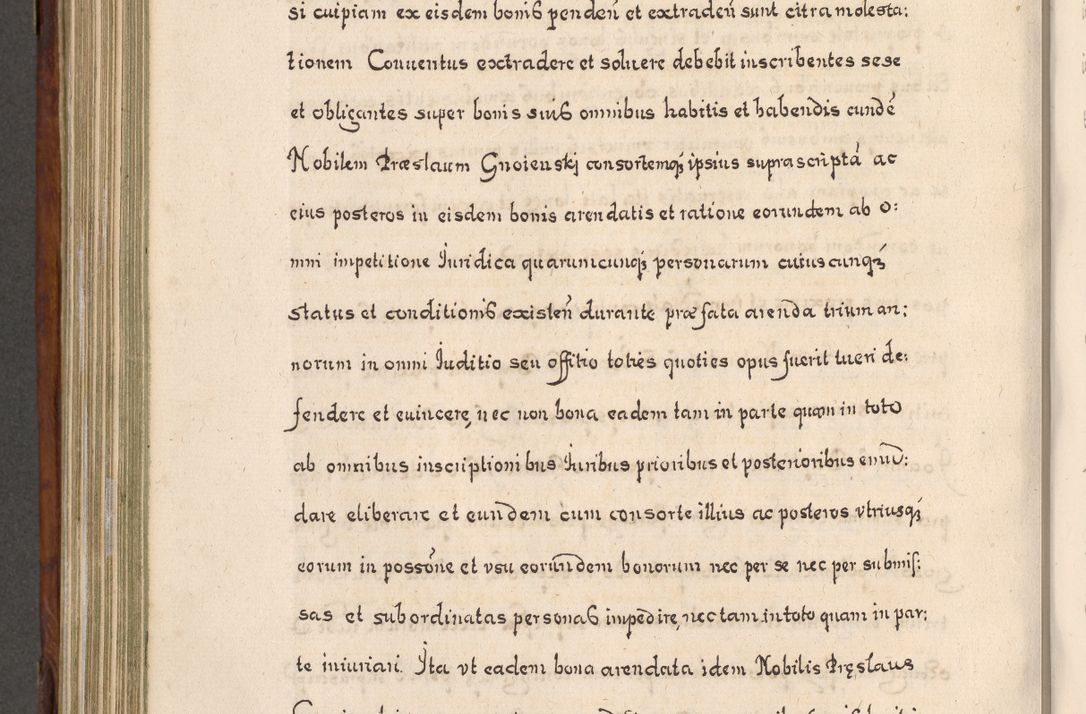 si cuipiam ex eisdem bonis pendeñ et extradeñ sunt citra molesta:
tionem Conuentus extradere et soluere debebit inscribentes sese
et obligantes super bonis suis omnibus habitis et habendis eundē
Nobilem Præslaum Gnoienski consortemqꝫ ipsius suprascriptā ac
eius posteros in eisdem bonis arendatis et ratione eorundem ab o:
mni impetitione Juridica quarumcunqꝫ personarum cuiuscunqꝫ
status et conditionis existeñ durante præfata arenda trium an:
norum in omni Juditio seu offitio toties quoties opus fuerit tueri de:
fendere et euincere, nec non bona eadem tam in parte quam in toto
ab omnibus inscriptionibus Juribus prioribus et posterioribus emū:
dare eliberare et eundem cum consorte illius ac posteros vtriusqꝫ
eorum in possōne et vsu eorundem bonorum nec per se nec per submis:
sas et subordinatas personas impedire, nec tam in toto quam in par:
te iniuriari. Ita vt eadem bona arendata idem Nobilis Pręslaus